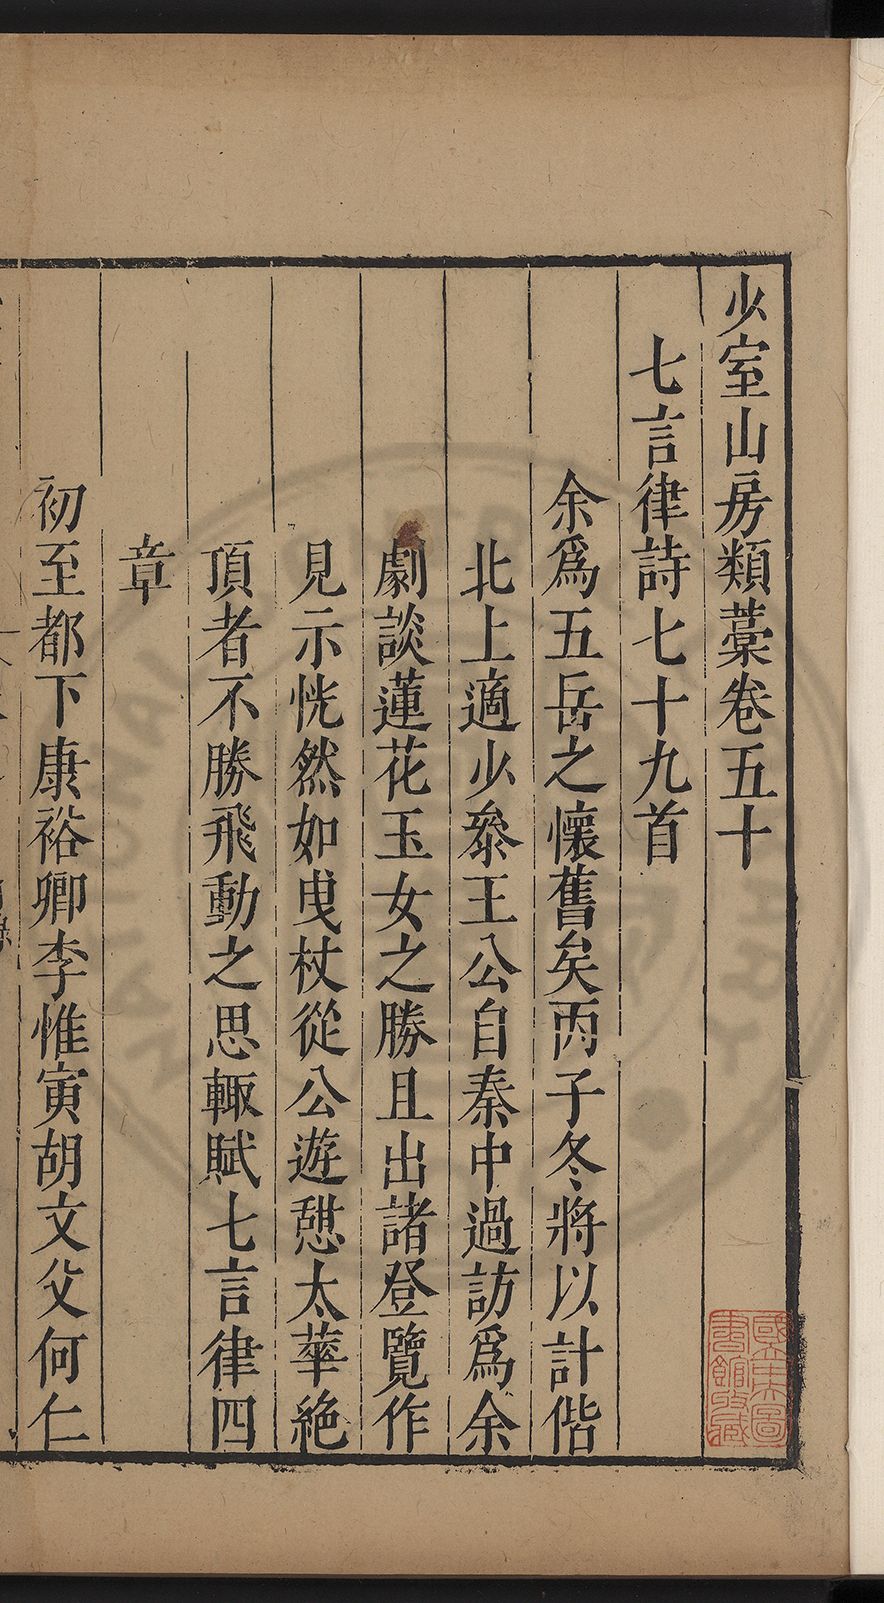 少室山房類藁卷五十
七言律詩七十九首
余爲五岳之懷舊矣丙子冬將以計偕
北上適少叅王公自秦中過訪爲余
劇談蓮花玉女之勝且出諸登覽作
見示恍然如曵杖從公遊憇太華絶
頂者不勝飛動之思輙賦七言律四
章
初至都下康裕卿李惟寅胡文父何仁
國立中央圖書館收藏